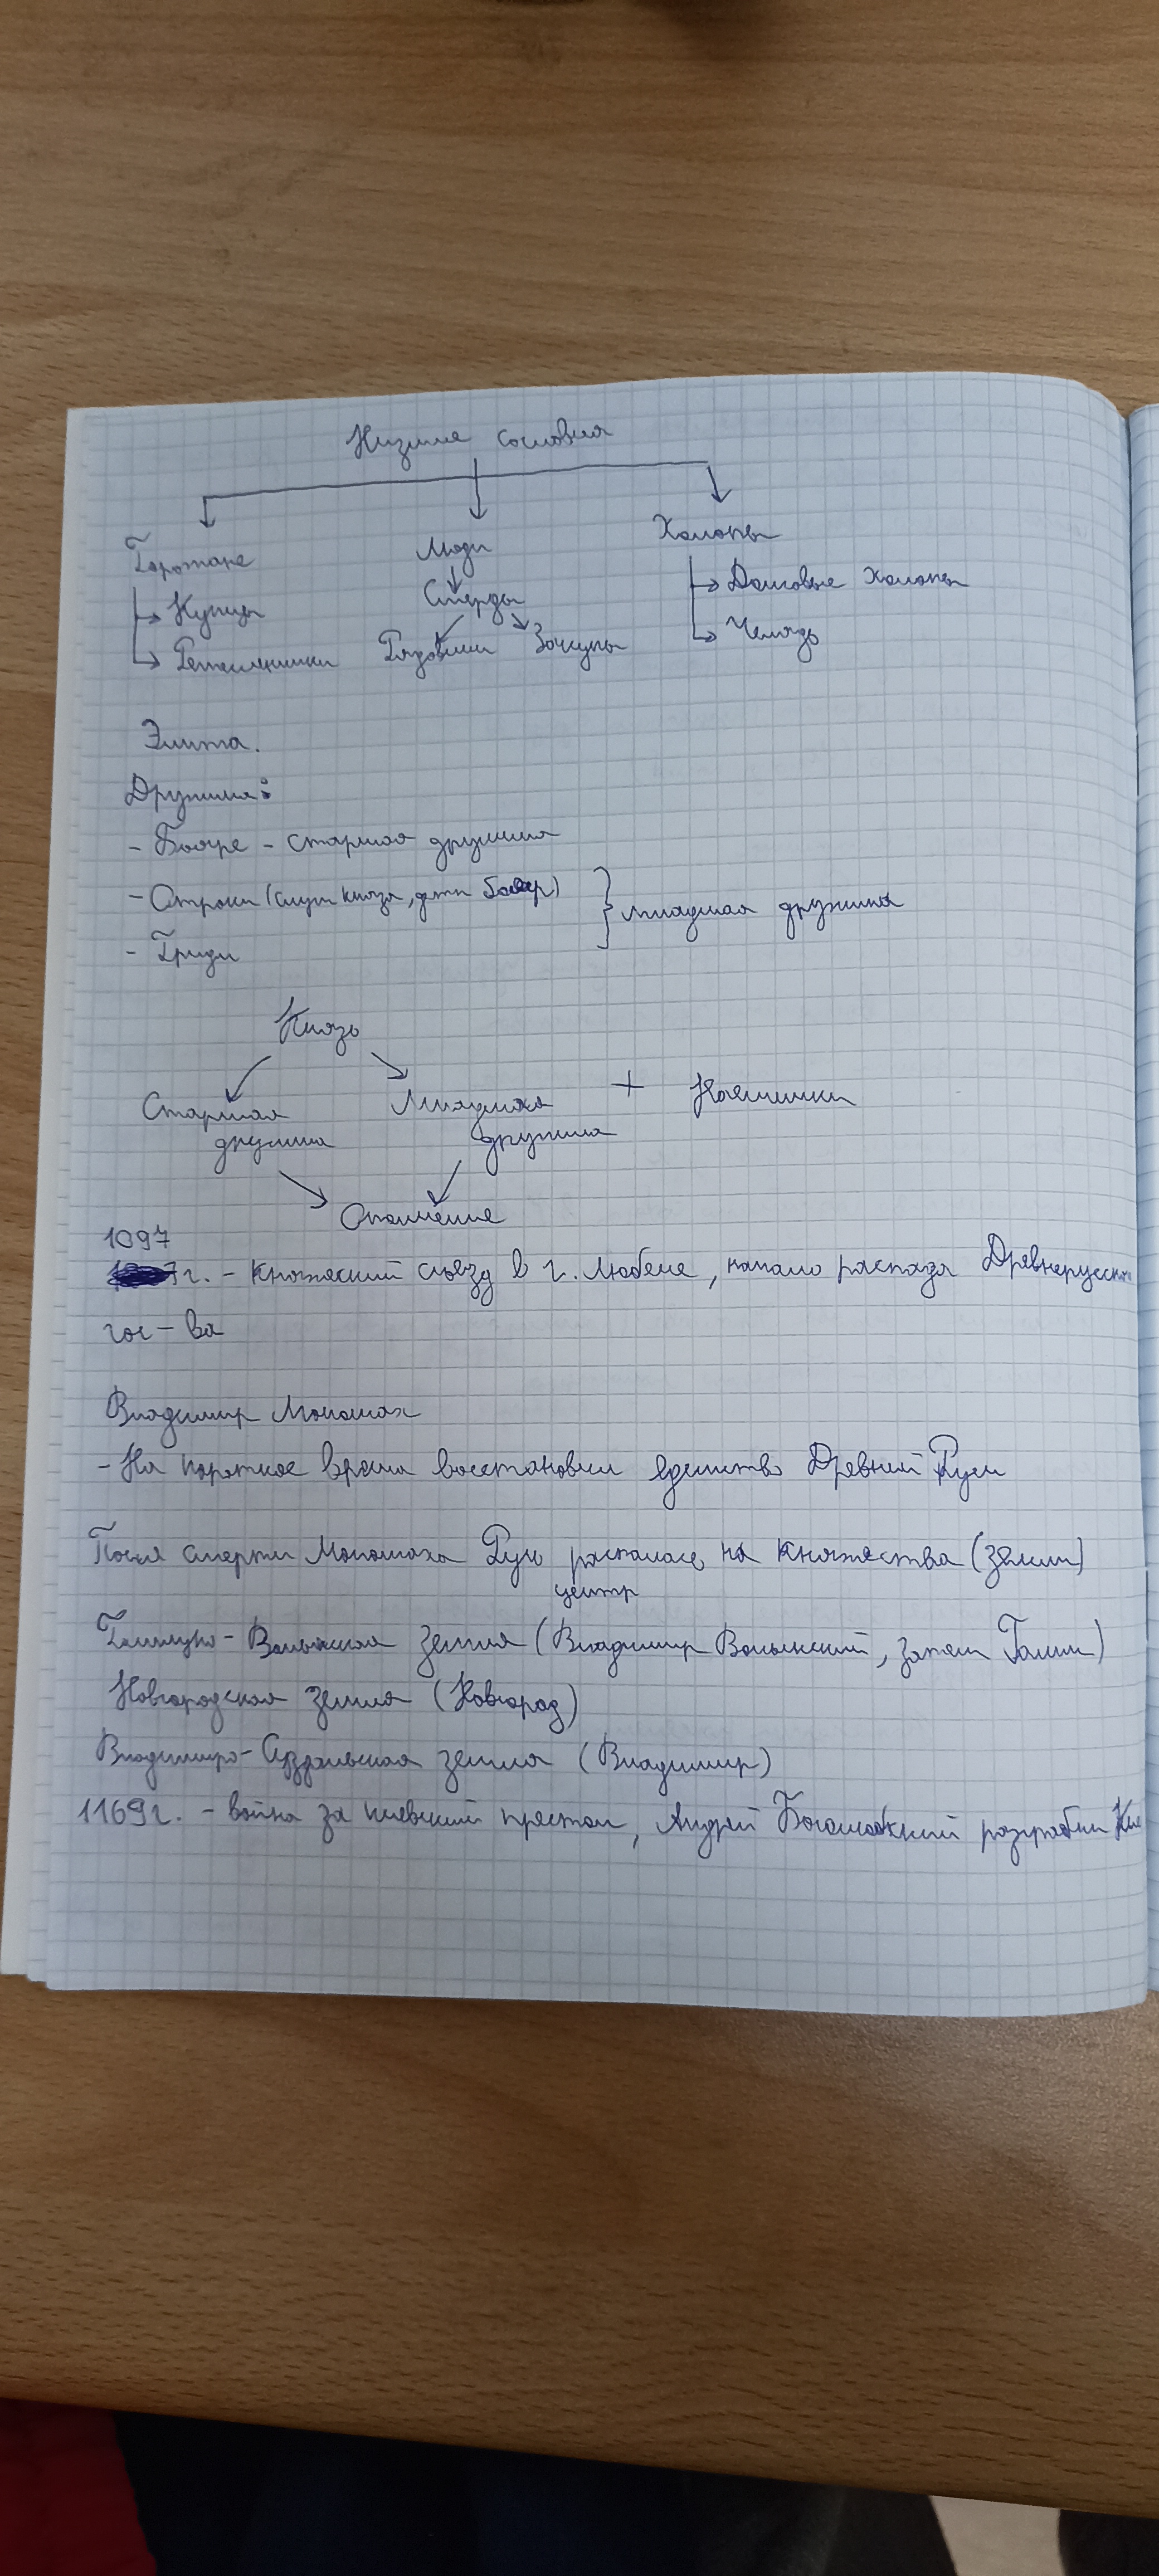 Низшие сословия
Горожане Люди Холопы
Купцы Смерды Долговые холопы
Ремесленники Рядовичи Закупы Челядь
Элита.
Дружина:
- Бояре - старшая дружина
- Отроки (слуги князя, дети бояр)
младшая дружина
- Гриди
Князь
Старшая дружина Младшая дружина + Наёмники
Ополчение
1097
г. - Княжеский съезд в г. Любече, начало распада Древнерусско
гос-ва
Владимир Мономах
- На короткое время восстановил единство Древней Руси
После смерти Мономаха Русь распалась на княжества (земли)
центр
Галицко-Волынская земля (Владимир Волынский, затем Галич)
Новгородская земля (Новгород)
Владимиро-Суздальская земля (Владимир)
1169г. - война за киевский престол, Андрей Боголюбский разграбил Кие